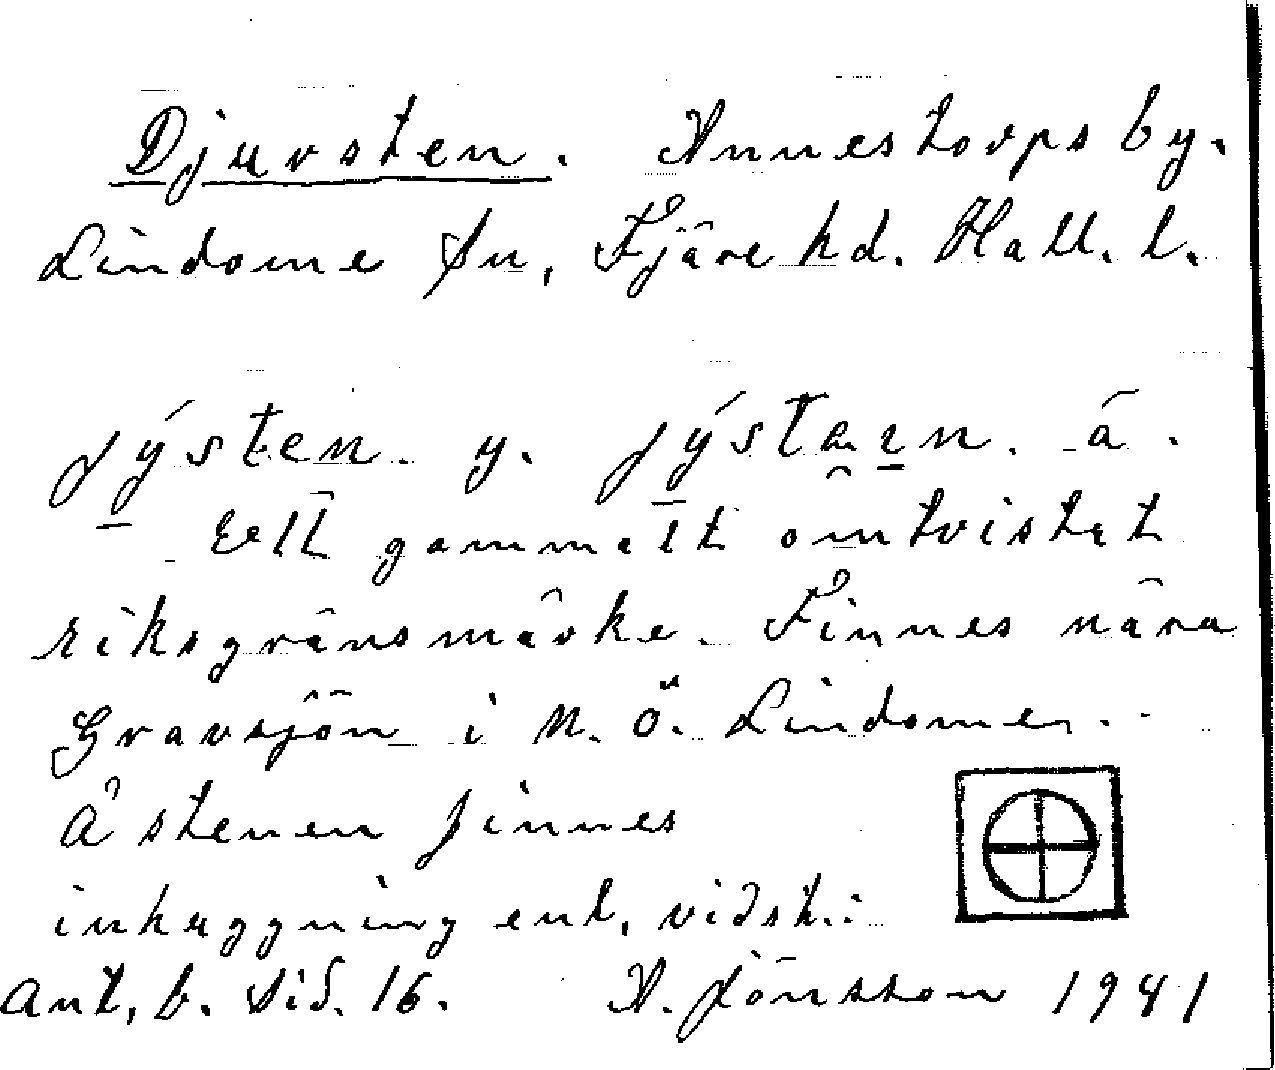 Djursten. Annestorps by.
Lindome sn, Fjäre hd. Hall. l.
jýsten y. jýstaɪn. á.
Ett gammalt omtvistat
riksgränsmärke. Finnes nära
Gravsjön i N. Ö. Lindome.
Å stenen finnes
inhuggning enl. vidst.:
Ant. b. Sid. 16. A. Jönsson 1941